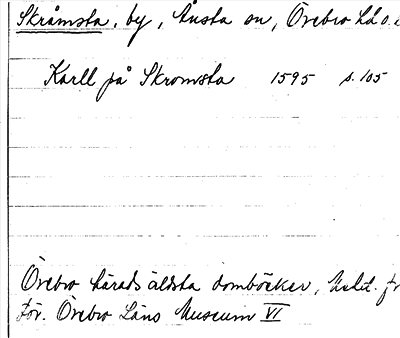 Skråmsta, by, Ånsta sn, Örebro hd o.
Karll på Skromsta 1595 s. 105
Örebro härads äldsta domböcker, Meld. fr
För. Örebro Läns Museum VI